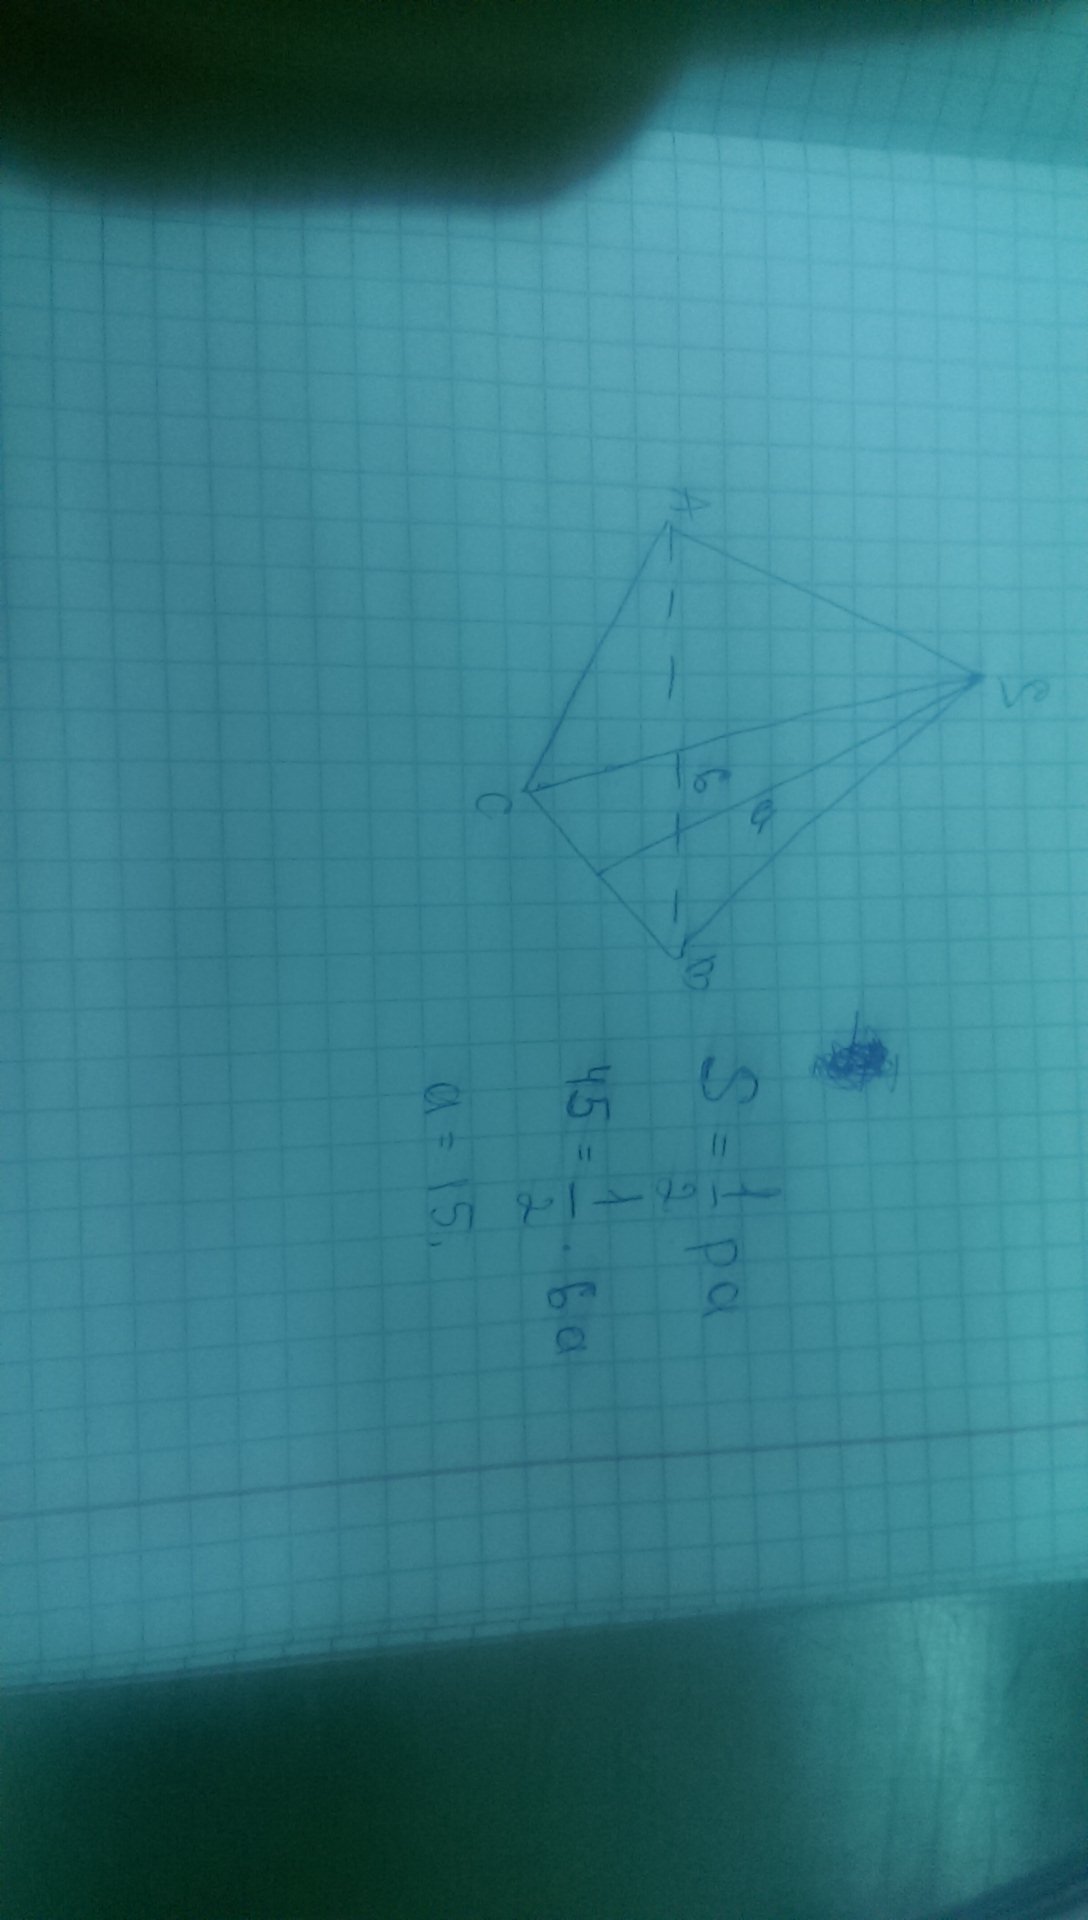 S
A
6
a
B
C
S = 1/2 pa
45 = 1/2 · 6a
a = 15.